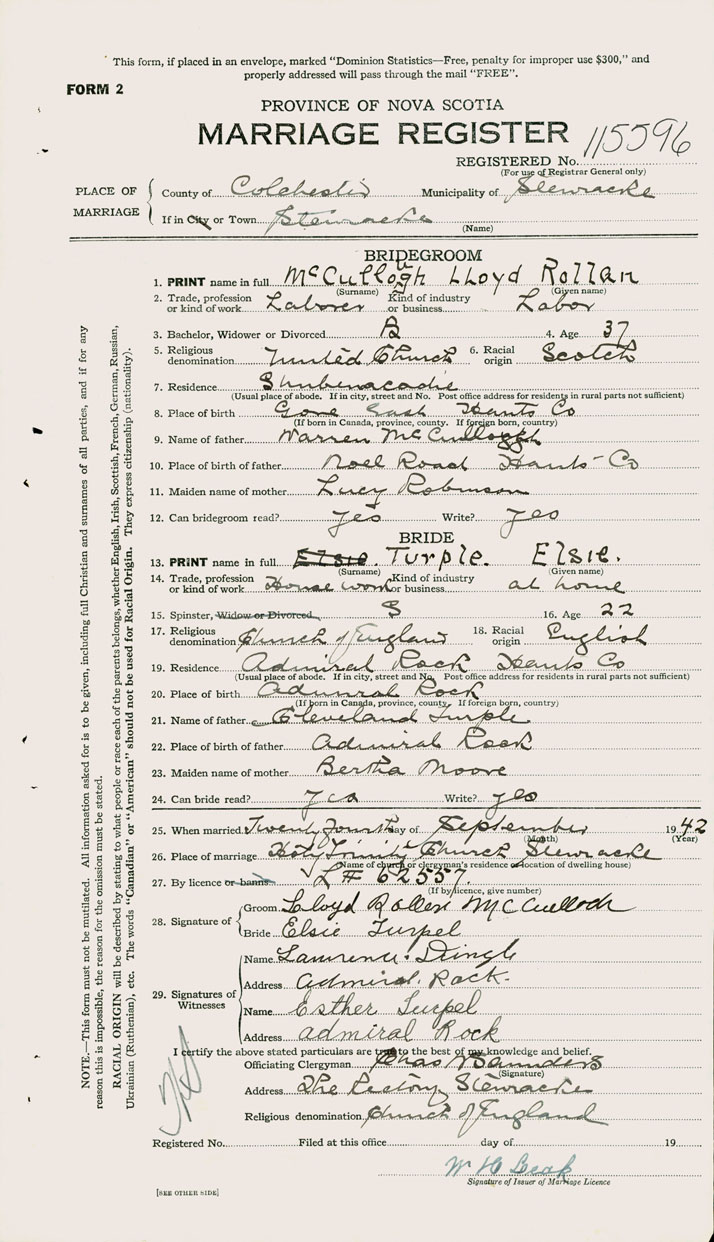 This form, if placed in an envelope, marked "Dominion Statistics—Free, penalty for improper use $300," and
properly addressed will pass through the mail "FREE".
FORM 2
PROVINCE OF NOVA SCOTIA
MARRIAGE REGISTER 115596
REGISTERED No.
(For use of Registrar General only)
PLACE OF MARRIAGE
County of Colchester Municipality of Stewiacke
If in City or Town Stewiacke
(Name)
BRIDEGROOM
1. PRINT name in full McCullogh LLoyd Rollan
(Surname) (Given name)
2. Trade, profession or kind of work Laborer Kind of industry or business Labor
3. Bachelor, Widower or Divorced B 4. Age 37
5. Religious denomination United Church 6. Racial origin Scotch
7. Residence Shubenacadie
(Usual place of abode. If in city, street and No. Post office address for residents in rural parts not sufficient)
8. Place of birth Gore East Hants Co
(If born in Canada, province, county. If foreign born, country)
9. Name of father Warren McCullogh
10. Place of birth of father Noel Road Hants Co
11. Maiden name of mother Lucy Robinson
12. Can bridegroom read? yes Write? yes
BRIDE
13. PRINT name in full Elsie. Turple. Elsie.
(Surname) (Given name)
14. Trade, profession or kind of work House work Kind of industry or business at home
15. Spinster, Widow or Divorced S 16. Age 22
17. Religious denomination Church of England 18. Racial origin English
19. Residence Admiral Rock Hants Co
(Usual place of abode. If in city, street and No. Post office address for residents in rural parts not sufficient)
20. Place of birth Admiral Rock
(If born in Canada, province, county. If foreign born, country)
21. Name of father Cleveland Turple
22. Place of birth of father Admiral Rock
23. Maiden name of mother Bertha Moore
24. Can bride read? yes Write? yes
25. When married Twenty fourth day of September 1942
(Month) (Year)
26. Place of marriage Holy Trinity Church Stewiacke
(Name of church or clergyman's residence or location of dwelling house)
27. By licence or banns L # 62557.
(If by licence, give number)
28. Signature of
Groom Lloyd Rollen McCulloch
Bride Elsie Turpel
29. Signatures of Witnesses
Name Lawrence Dingle
Address Admiral Rock
Name Esther Turpel
Address admiral Rock
I certify the above stated particulars are true to the best of my knowledge and belief.
Officiating Clergyman Chas Saunders
(Signature)
Address The Rectory, Stewiacke
Religious denomination Church of England
Registered No. Filed at this office day of 19
W H
Signature of Issuer of Marriage Licence
[SEE OTHER SIDE]
NOTE.—This form must not be mutilated. All information asked for is to be given, including full Christian and surnames of all parties, and if for any
reason this is impossible, the reason for the omission must be stated.
RACIAL ORIGIN will be described by stating to what people or race each of the parents belongs, whether English, Irish, Scottish, French, German, Russian,
Ukrainian (Ruthenian), etc. The words "Canadian" or "American" should not be used for Racial Origin. They express citizenship (nationality).